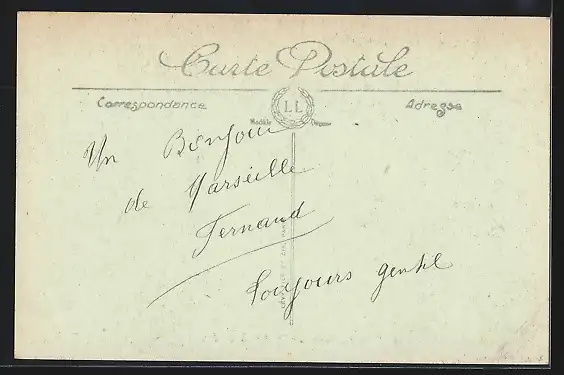 Carte Postale
Correspondance
Adresse
LL
Un Bonjour
de Marseille
Fernand
Toujours gentil